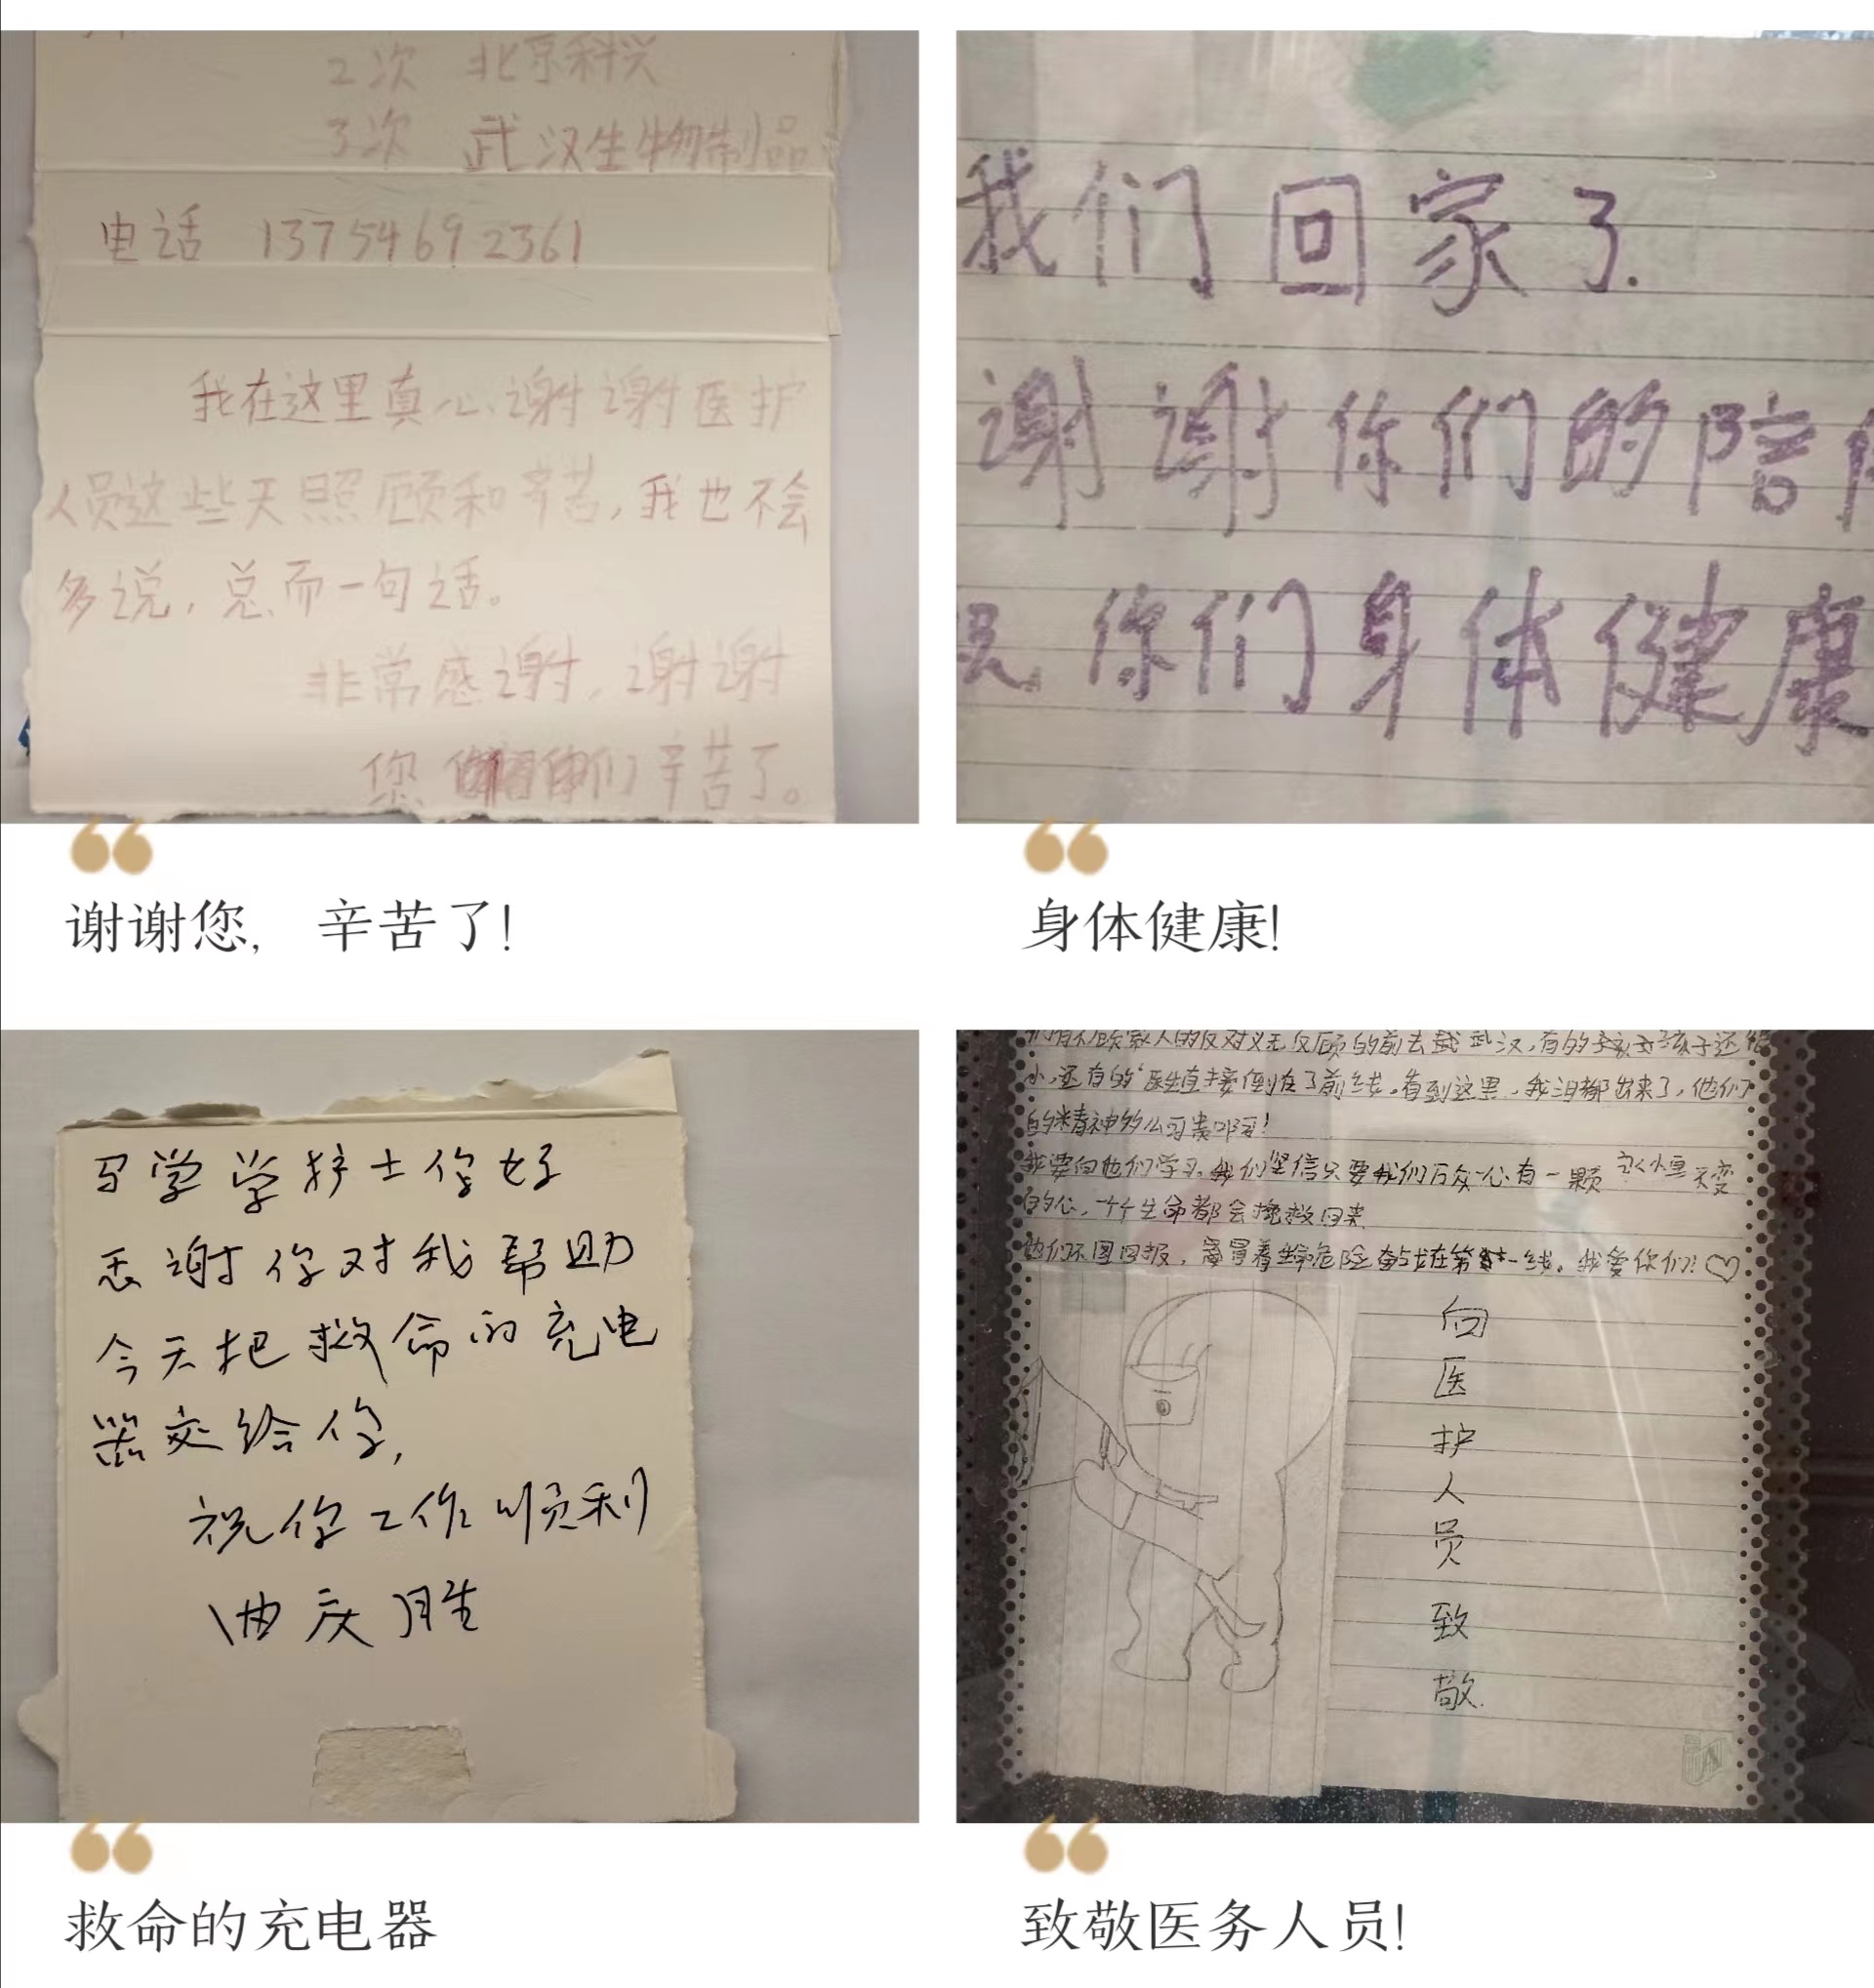 2次 北京科兴
3次 武汉生物制品
电话 13754692361
我在这里真心谢谢医护
人员这些天照顾和辛苦，我也不会
多说，总而一句话。
非常感谢，谢谢
您 们辛苦了。
谢谢您，辛苦了!
我们回家了.
谢谢你们的陪
你们身体健康
身体健康!
学学护士你好
谢你对我帮助
今天把救命的充电
器交给你，
祝你工作顺利
曲庆胜
救命的充电器
们有不顾家人的反对义无反顾的前去 武汉，有的 孩子还很
小，还有的医生直接倒在了前线。看到这里，我泪都出来了，他们
的精神多么可贵啊!
我要向他们学习。我们坚信只要我们万众一心有一颗 不变
的心，个个生命都会挽救回来
他们不图回报， 冒着 危险奋战在第一线。我爱你们!♡
向
医
护
人
员
致
敬.
致敬医务人员!